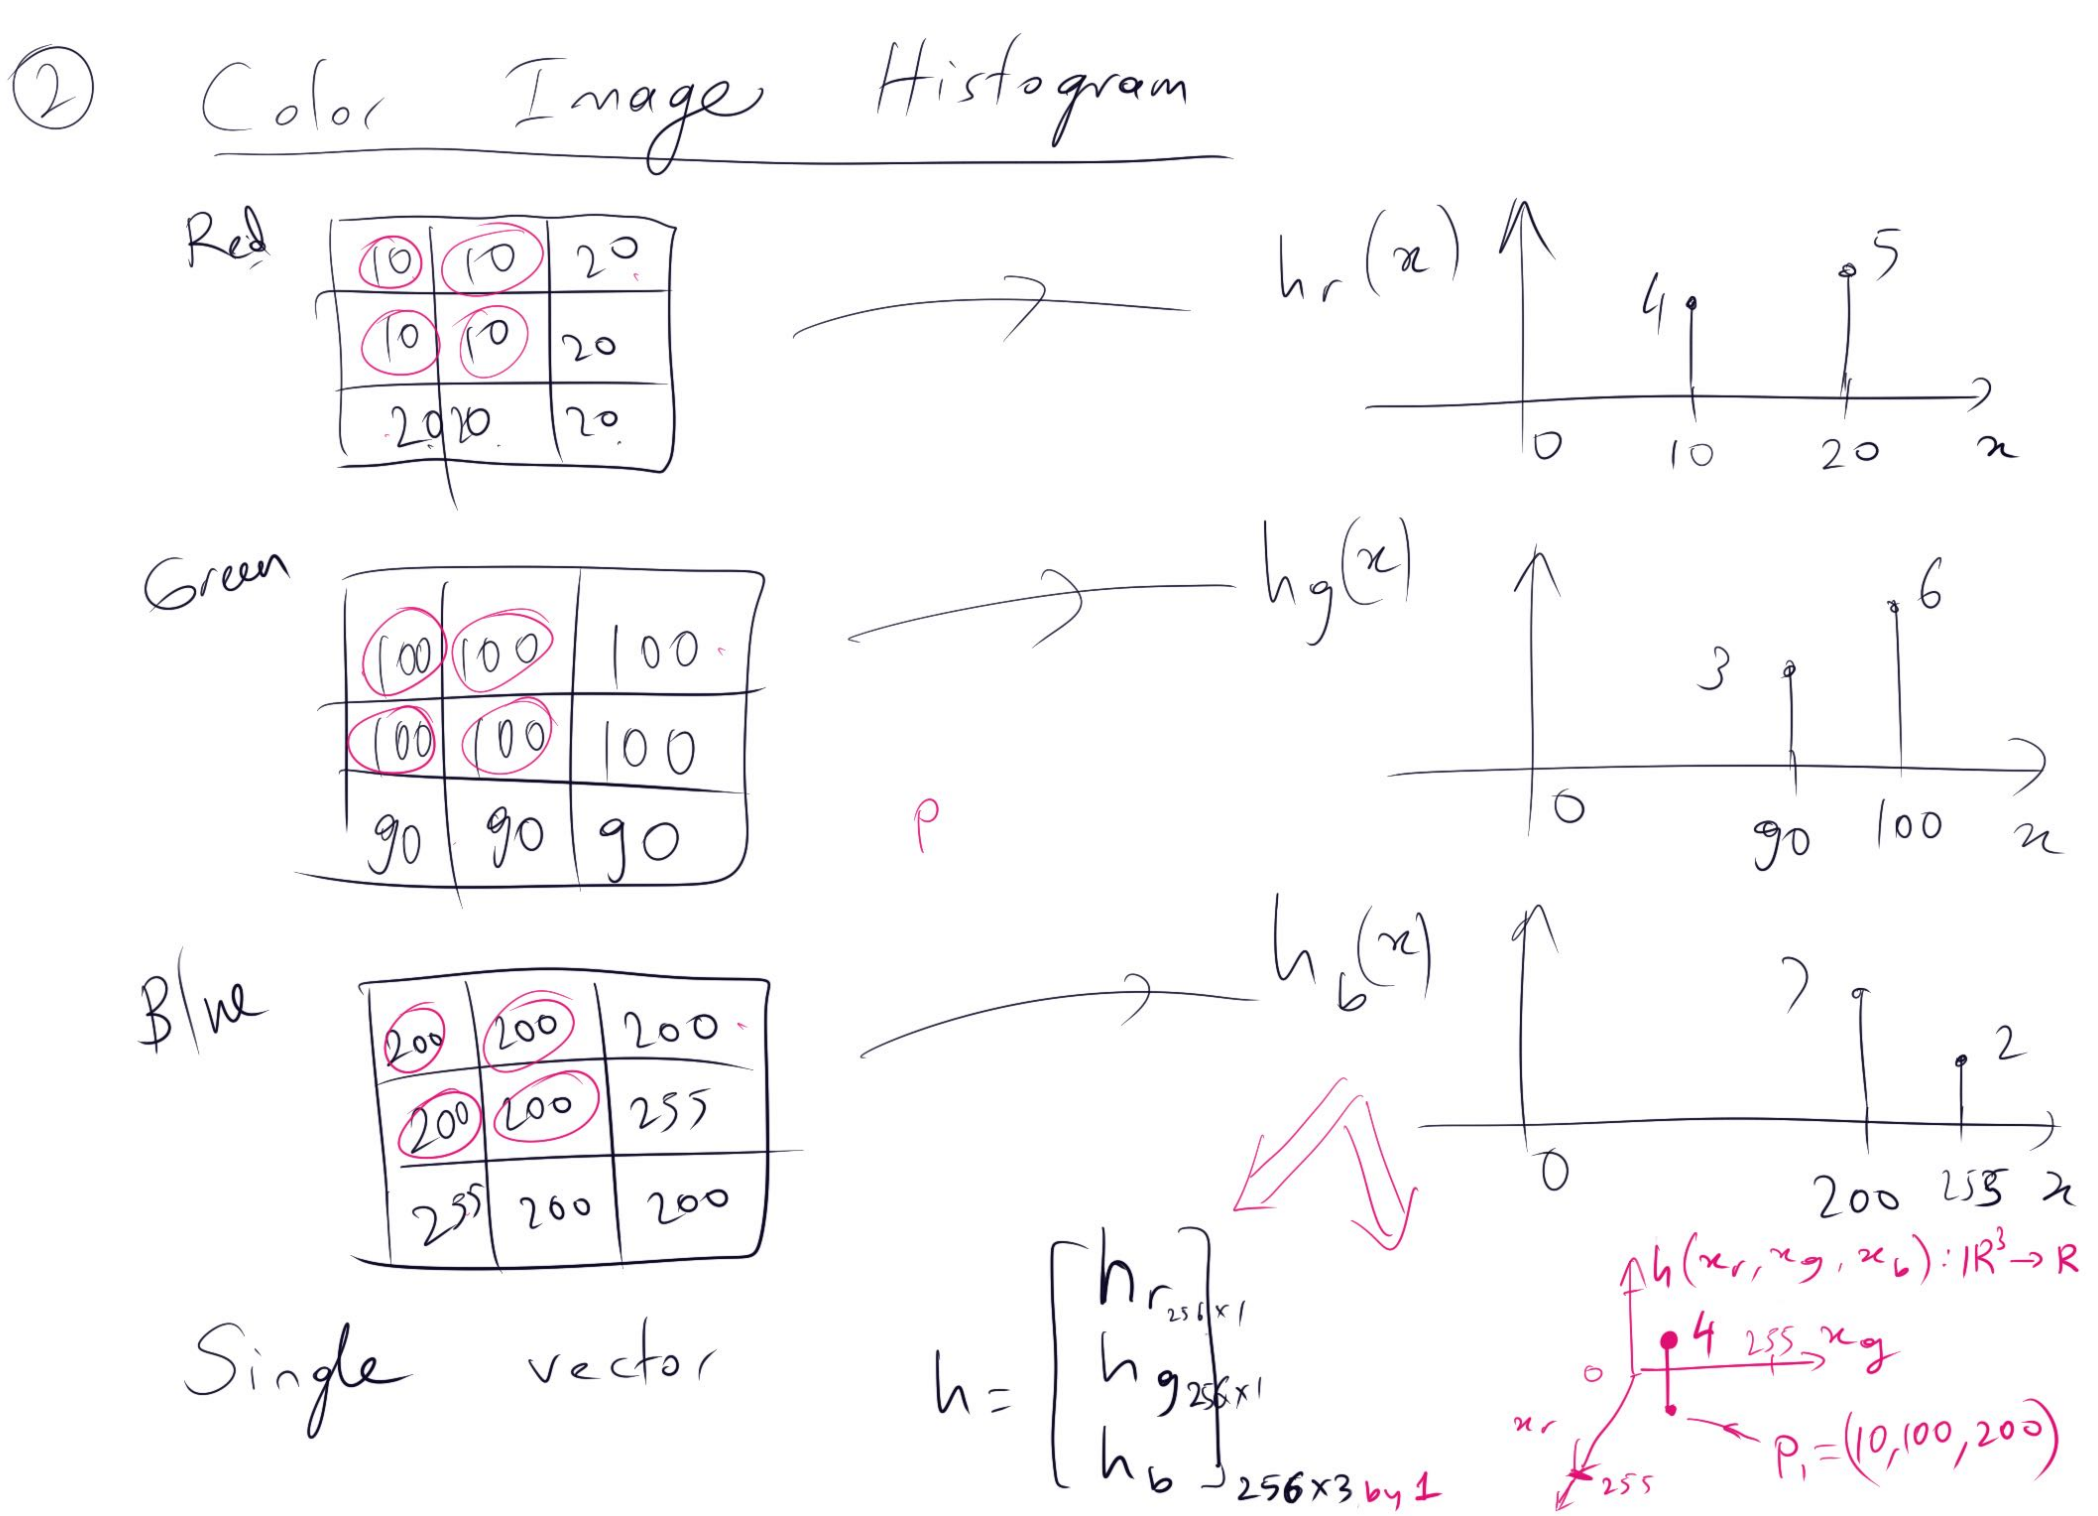 ② Color Image Histogram
Red
10 10 20
10 10 20
20 20 20
hr(x)
4 5
0 10 20 x
Green
100 100 100
100 100 100
90 90 90
hg(x)
3 6
0 90 100 x
P
Blue
200 200 200
200 200 255
255 200 200
hb(x)
7 2
0 200 255 x
Single vector
h = [ hr 256×1
hg 256×1
hb ] 256×3 by 1
h(xr, xg, xb) : ℝ³ → R
4 255 xg
0
xr
255
P1 = (10, 100, 200)